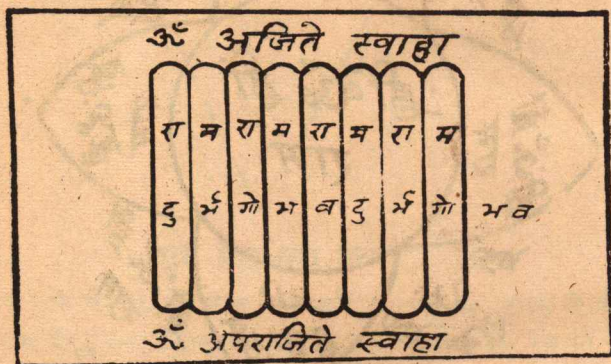 ॐ अजिते स्वाहा
रा म रा म रा म रा म
दु र्भ गो भ व दु र्भ गो भ व
ॐ अपराजिते स्वाहा